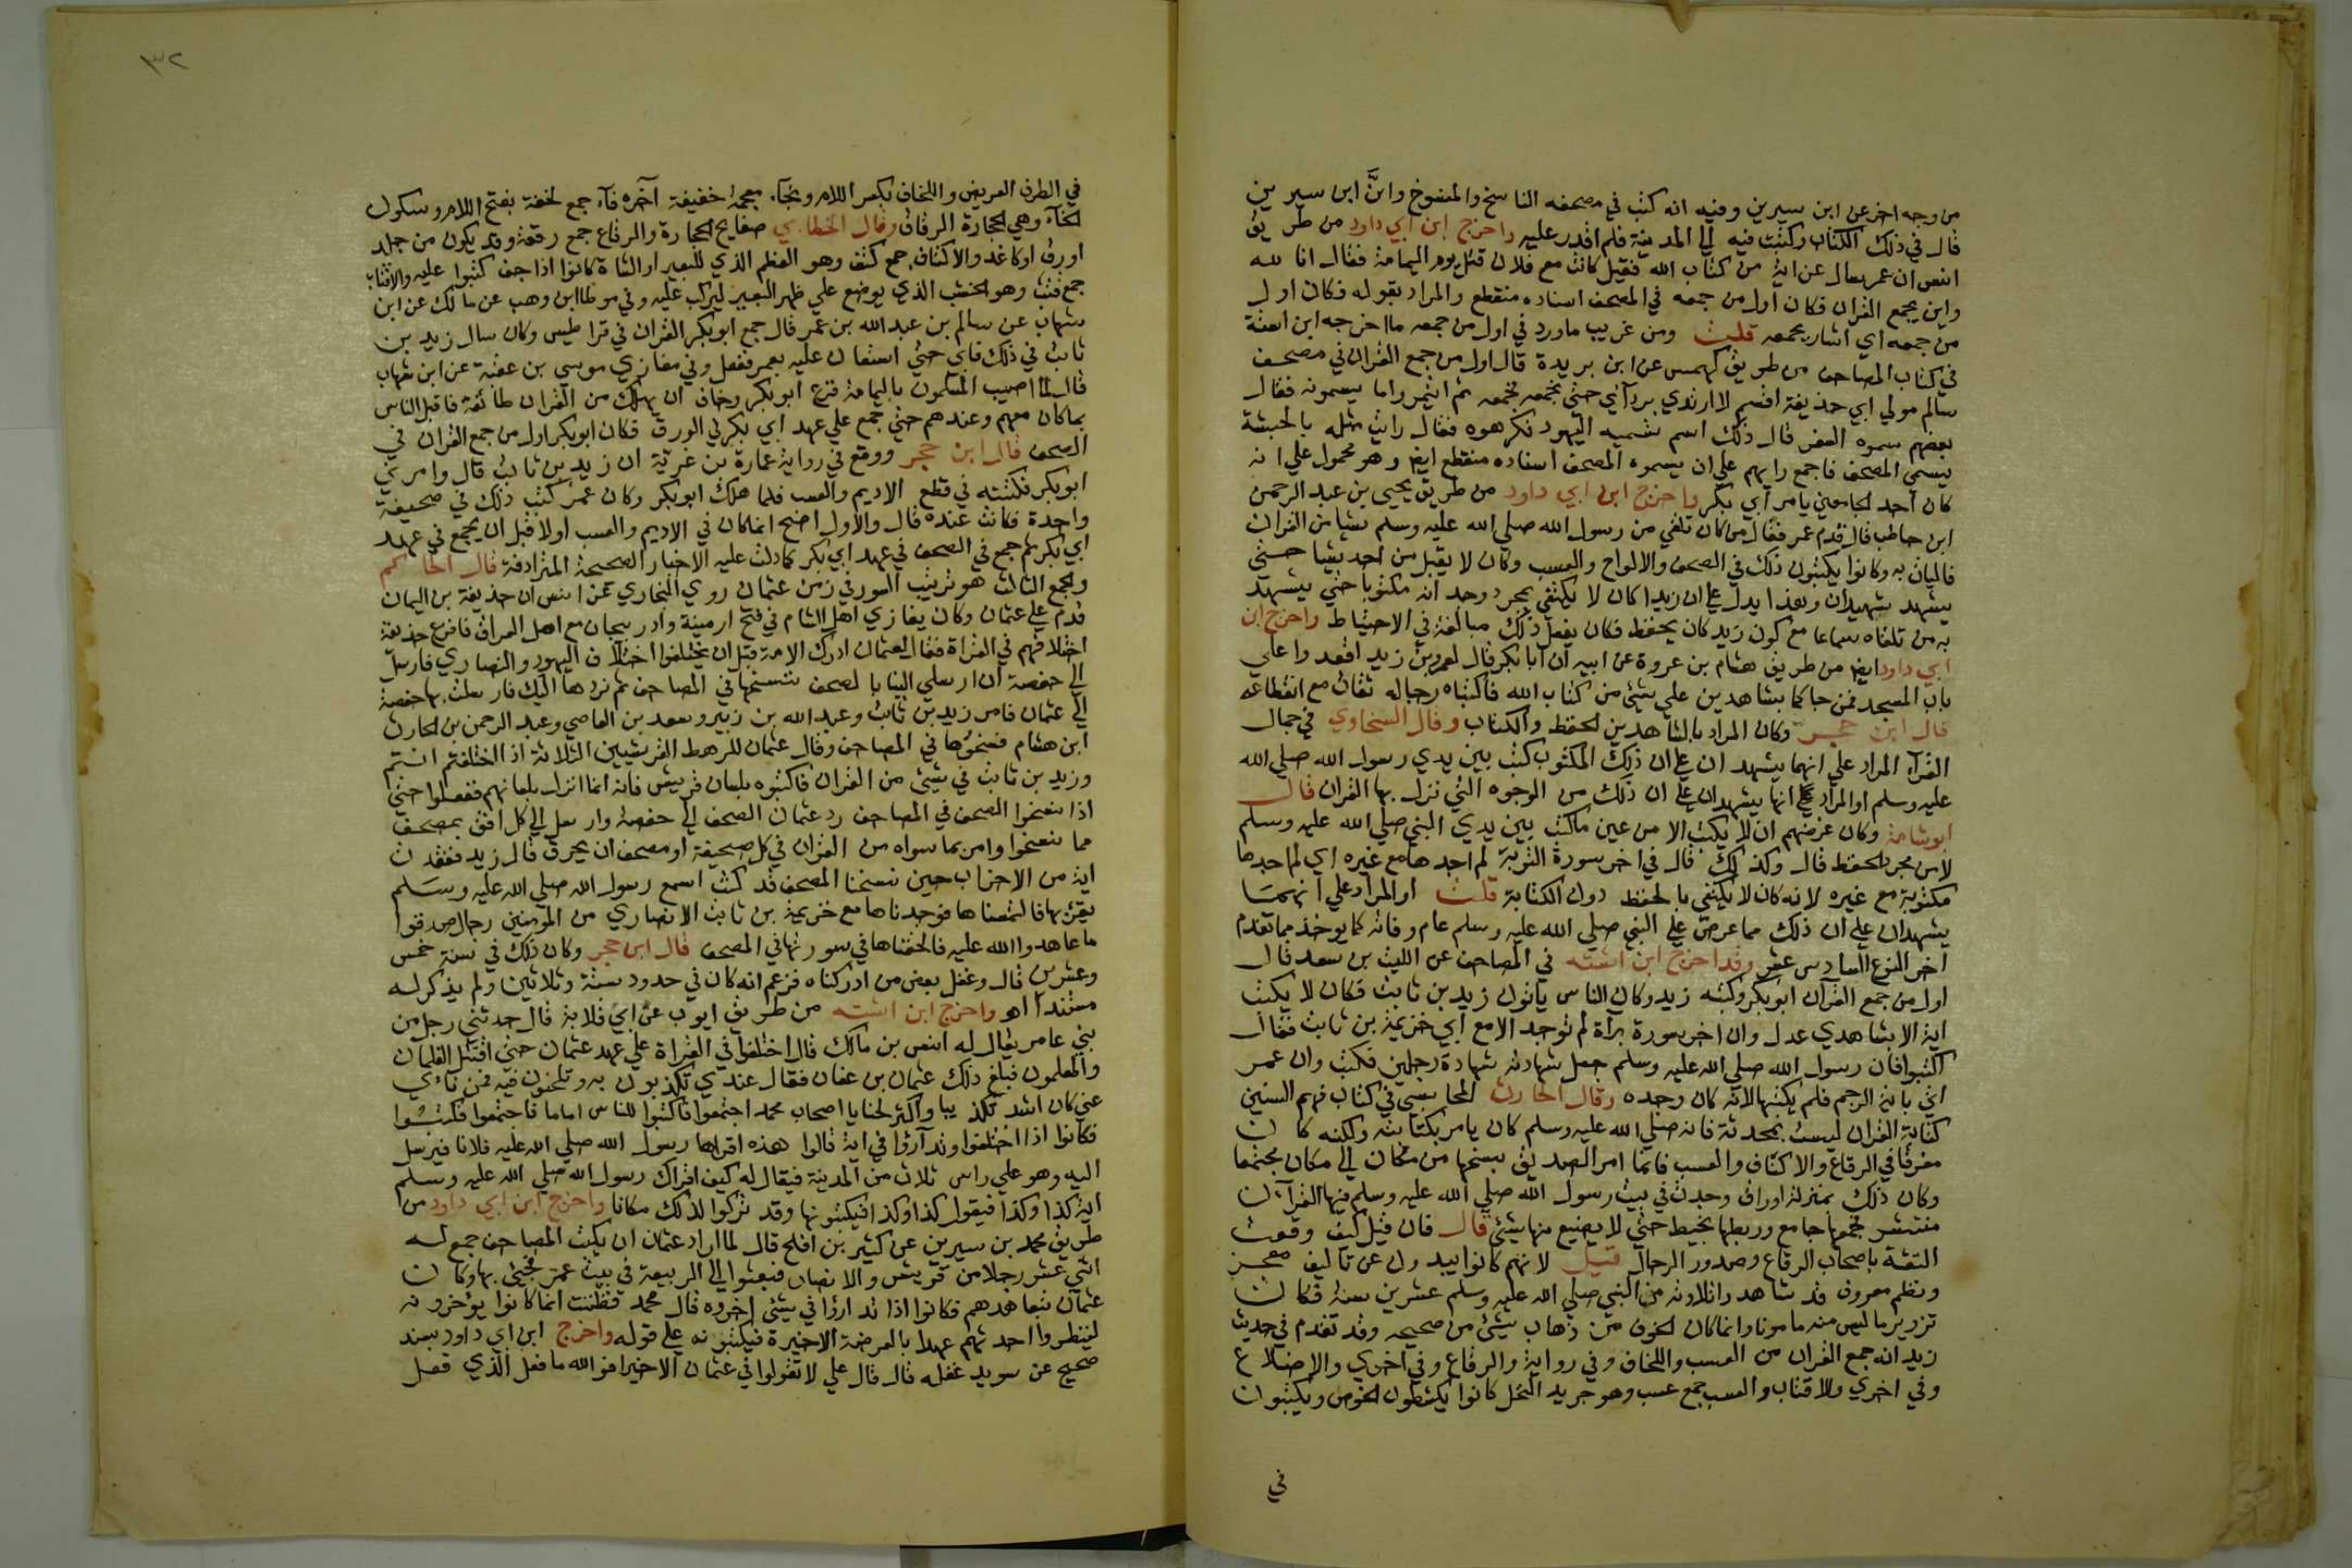 من وجه اخر عن ابن سيرين وفيه انه كتب في مصحفه الناسخ والمنسوخ وانَّ ابن سيرين
قال في ذلك الكتاب وكتبت فيه الي المدينة فلم اقدر عليه واخرج ابن ابي داود من طريق
ان عمر سال عن اية من كتاب الله فقيل كانت مع فلان قتل يوم اليمامة فقال انا لله
وامر بجمع القران فكان اول من جمعه في المصحف اسناده منقطع والمراد بقوله فكان اول
من جمعه اي اشار بجمعه قلت ومن غريب ما ورد في اول من جمعه ما اخرجه ابن اشتة
في كتاب المصاحف من طريق كهمس عن ابن بريدة قال اول من جمع القران في مصحف
سالم مولي ابي حذيفة اقسم لا ارتدي بردآي حتي بجمعه فجمعه ثم ائتمروا ما يسمونه فقال
بعضهم سموه السفر قال ذلك اسم تسميه اليهود فكرهوه فقال رايت مثله بالحبشة
يسمي المصحف فاجمع رايهم علي ان يسموه المصحف اسناده منقطع ايض وهو محمول علي انه
كان احد الجامعين بامر ابي بكر واخرج ابن ابي داود من طريق يحيي بن عبد الرحمن
ابن حاطب قال قدم عمر فقال من كان تلقي من رسول الله صلي الله عليه وسلم شيا من القران
فاليات به وكانوا يكتبون ذلك في الصحف والالواح والعسب وكان لا يقبل من احد شيا حتي
يشهد شهيدان وهذا يدل علي ان زيدا كان لا يكتفي بمجرد وجدانه مكتوبا حتي يشهد
به من تلقاه سماعا مع كون زيد كان يحفظ فكان يفعل ذلك مبالغة في الاحتياط واخرج ابن
ابي داود ايض من طريق هشام بن عروة عن ابيه ان ابا بكر قال لعمر وبن زيد اقعدوا علي
باب المسجد فمن جاكما بشاهدين علي شيئ من كتاب الله فاكتباه رجاله ثقات مع انقطاعه
قال ابن حجر وكان المراد بالشاهدين الحفظ والكتاب وقال السخاوي في جمال
القرآ المراد علي انهما يشهدان علي ان ذلك المكتوب كتب بين يدي رسول الله صلي الله
عليه وسلم او المراد علي انهما يشهدان علي ان ذلك من الوجوه التي نزل بها القران قال
ابو شامة وكان غرضهم ان لا يكتب الا من عين ما كتب بين يدي النبي صلي الله عليه وسلم
لا من مجرد الحفظ قال وكذلك قال في اخر سورة التوبة لم اجدها مع غيره اي لم اجدها
مكتوبة مع غيره لانه كان لا يكتفي بالحفظ دون الكتابة قلت او المراد علي انهما
يشهدان علي ان ذلك مما عرض علي النبي صلي الله عليه وسلم عام وفاته كما يوخذ مما تقدم
اخر النوع السادس عشر وقد اخرج ابن اشته في المصاحف عن الليث بن سعد قال
اول من جمع القران ابو بكر وكتبه زيد وكان الناس ياتون زيد بن ثابت فكان لا يكتب
اية الا بشاهدي عدل وان اخر سورة براة لم توجد الا مع ابي خزيمة بن ثابت فقال
اكتبوا فان رسول الله صلي الله عليه وسلم جعل شهادته شهادة رجلين فكتب وان عمر
اتي باية الرجم فلم يكتبها لانه كان وحده وقال الحارث المحاسبي في كتاب فهم السنين
كتابة القران ليست بمحدثة فانه صلي الله عليه وسلم كان يامر بكتابته ولكنه كان
مفرقا في الرقاع والاكتاف والعسب فانما امر الصديق بنسخها من مكان الي مكان مجتمعا
وكان ذلك بمنزلة اوراق وجدت في بيت رسول الله صلي الله عليه وسلم فيها القرآن
منتشر فجمعها جامع وربطها بخيط حتي لا يضيع منها شيئ قال فان قيل كيف وقعت
الثقة باصحاب الرقاع وصدور الرجال قيل لانهم كانوا يبدون عن تاليف معجز
ونظم معروف قد شاهدوا تلاوته من النبي صلي الله عليه وسلم عشرين سنة فكان
تزوير ما ليس منه مامونا وانما كان الخوف من ذهاب شيئ من صحيحه وقد تقدم في حديث
زيد انه جمع القران من العسب واللخاف وفي رواية والرقاع وفي اخري والاضلاع
وفي اخري والاقتاب والعسب جمع عسب وهو جريد النخل كانوا يكشطون الخوص ويكتبون
في
٣٢
في الطرف العريض واللخاف بكسر اللام وبخآء معجمة خفيفة آخره فآء جمع لخفة بفتح اللام وسكون
الخآء وهي الحجارة الرقاق وقال الخطابي صفايح الحجارة والرقاع جمع رقعة وقد يكون من جلد
اورق او كاغد والاكتاف جمع كتف وهو العظم الذي للبعير او الشاة كانوا اذا جف كتبوا عليه والاقتاب
جمع قتب وهو الخشب الذي يوضع علي ظهر البعير ليركب عليه وفي موطا ابن وهب عن مالك عن ابن
شهاب عن سالم بن عبد الله بن عمر قال جمع ابو بكر القران في قراطيس وكان سال زيد بن
ثابت في ذلك فابي حتي استعان عليه بعمر ففعل وفي مغازي موسي بن عقبة عن ابن شهاب
قال لما اصيب المسلمون باليمامة فزع ابو بكر وخاف ان يهلك من القران طائفة فاقبل الناس
بما كان معهم وعندهم حتي جمع علي عهد ابي بكر في الورق فكان ابو بكر اول من جمع القران في
الصحف قال ابن حجر ووقع في رواية عمارة بن غزيّة ان زيد بن ثابت قال وامرني
ابو بكر فكتبته في قطع الاديم والعسب فلما هلك ابو بكر وكان عمر كتب ذلك في صحيفة
واحدة فكانت عنده قال والاول اصح انما كان في الاديم والعسب اولا قبل ان يجمع في عهد
ابي بكر ثم جمع في الصحف في عهد ابي بكر كما دلت عليه الاخبار الصحيحة المترادفة قال الحاكم
والجمع الثالث هو ترتيب السور في زمن عثمان روي البخاري عن انس ان حذيفة بن اليمان
قدم علي عثمان وكان يغازي اهل الشام في فتح ارمينة وادربيجان مع اهل العراق فافزع حذيفة
اختلافهم في القراة فقال لعثمان ادرك الامة قبل ان يختلفوا اختلاف اليهود والنصاري فارسل
الي حفصة ان ارسلي الينا بالصحف ننسخها في المصاحف ثم نردها اليك فارسلت بها حفصة
الي عثمان فامر زيد بن ثابت وعبد الله بن زبير وسعد بن العاصي وعبد الرحمن بن الحارث
ابن هشام فنسخوها في المصاحف وقال عثمان للرهط القرشيين الثلاثة اذا اختلفتم انتم
وزيد بن ثابت في شيئ من القران فاكتبوه بلسان قريش فانه انما انزل بلسانهم ففعلوا حتي
اذا نسخوا الصحف في المصاحف رد عثمان الصحف الي حفصة وارسل الي كل افق بمصحف
مما نسخوا وامر بما سواه من القران في كل صحيفة او مصحف ان يحرق قال زيد ففقدت
اية من الاحزاب حين نسخنا المصحف قد كنت اسمع رسول الله صلي الله عليه وسلم
يقرئ بها فالتمسناها فوجدناها مع خزيمة بن ثابت الانصاري من المومنين رجال صدقوا
ما عاهدوا الله عليه فالحقناها في سورتها في المصحف قال ابن حجر وكان ذلك في سنة خمس
وعشرين قال وغفل بعض من ادركناه فزعم انه كان في حدود سنة وثلاثين ولم يذكر له
مستندا اهـ واخرج ابن اشته من طريق ايوب عن ابي قلابة قال حدثني رجل من
بني عامر يقال له انس بن مالك قال اختلفوا في القراة علي عهد عثمان حتي اقتتل الغلمان
والمعلمون فبلغ ذلك عثمان بن عفان فقال عندي تكذبون به وتلحنون فيه فمن نائي
عني كان اشد تكذيبا واكثر لحنا يا اصحاب محمد اجتمعوا فاكتبوا للناس اماما فاجتمعوا فكتبوا
فكانوا اذا اختلفوا وتدآرؤا في اية قالوا هذه اقراها رسول الله صلي الله عليه فلانا فيرسل
اليه وهو علي راس ثلاث من المدينة فيقال له كيف اقراك رسول الله صلي الله عليه وسلم
اية كذا وكذا فيقول كذا وكذا فيكتبونها وقد تركوا لذلك مكانا واخرج ابن ابي داود من
طريق محمد بن سيرين عن كثير بن افلح قال لما اراد عثمان ان يكتب المصاحف جمع له
اثني عشر رجلا من قريش والانصار فبعثوا الي الربعة في بيت عمر فجيئ بها وكان
عثمان يتعاهدهم فكانوا اذا تدارؤا في شيئ اخروه قال محمد فظننت انما كانوا يؤخرونه
لينظروا احدثهم عهدا بالعرضة الاخيرة فيكتبونه علي قوله واخرج ابن ابي داود بسند
صحيح عن سويد غفله قال قال علي لا تقولوا في عثمان الا خيرا فوالله ما فعل الذي فعل